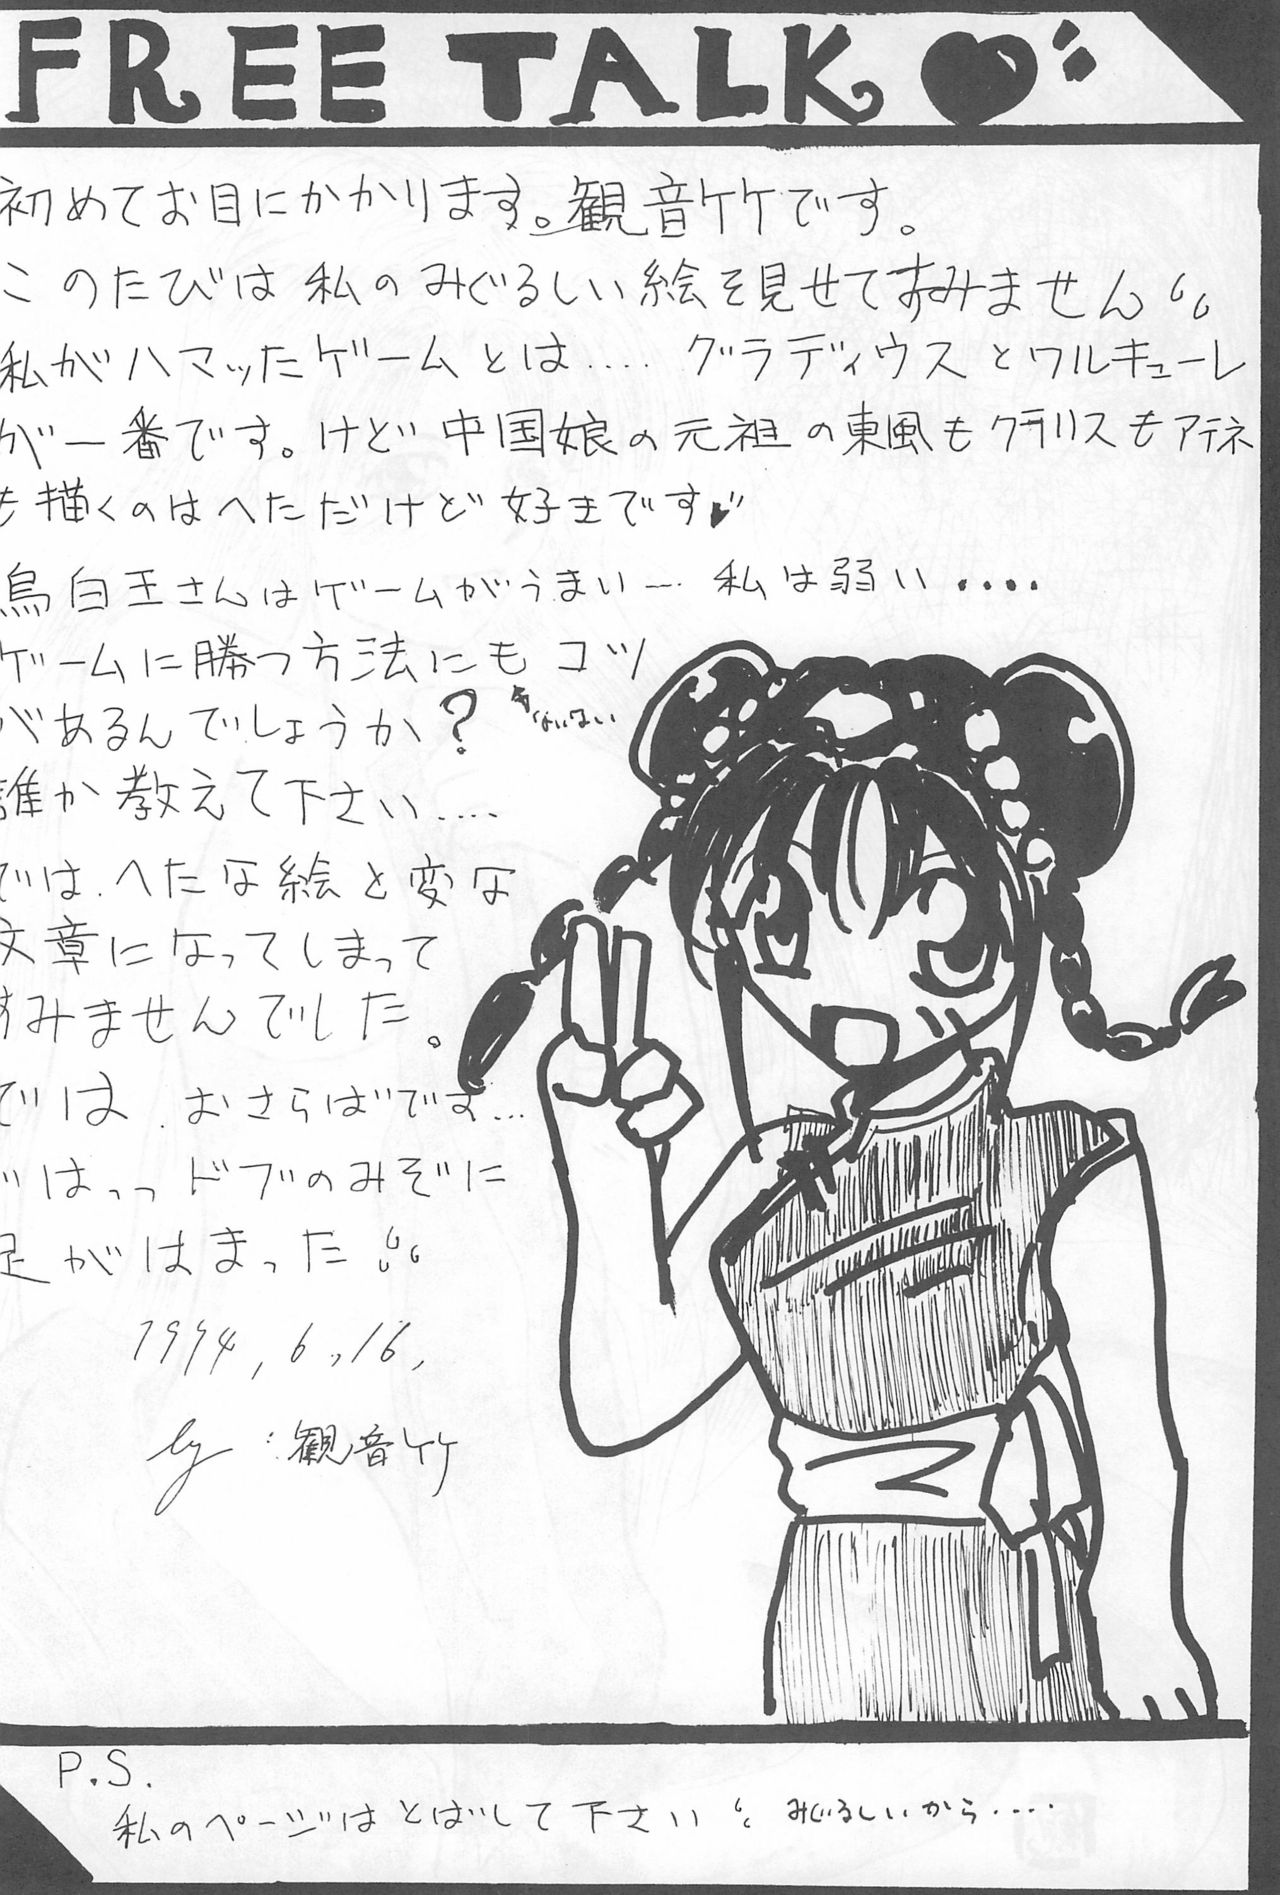 FREE TALK
初めてお目にかかります。観音竹です。
このたびは私のみぐるしい絵を見せてすみません
私がハマッたゲームとは…. グラディウスとワルキューレ
が一番です。けど中国娘の元祖の東風もクラリスもアテネ
も描くのはへただけど好きです
烏白王さんはゲームがうまい… 私は弱い….
ゲームに勝つ方法にもコツ
があるんでしょうか?
ないない
誰か教えて下さい….
では.へたな絵と変な
文章になってしまって
すみませんでした。
では.おさらばです…
はっっドブのみぞに
足がはまった
1994, 6, 16,
by:観音竹
P.S.
私のページはとばして下さい みぐるしいから….